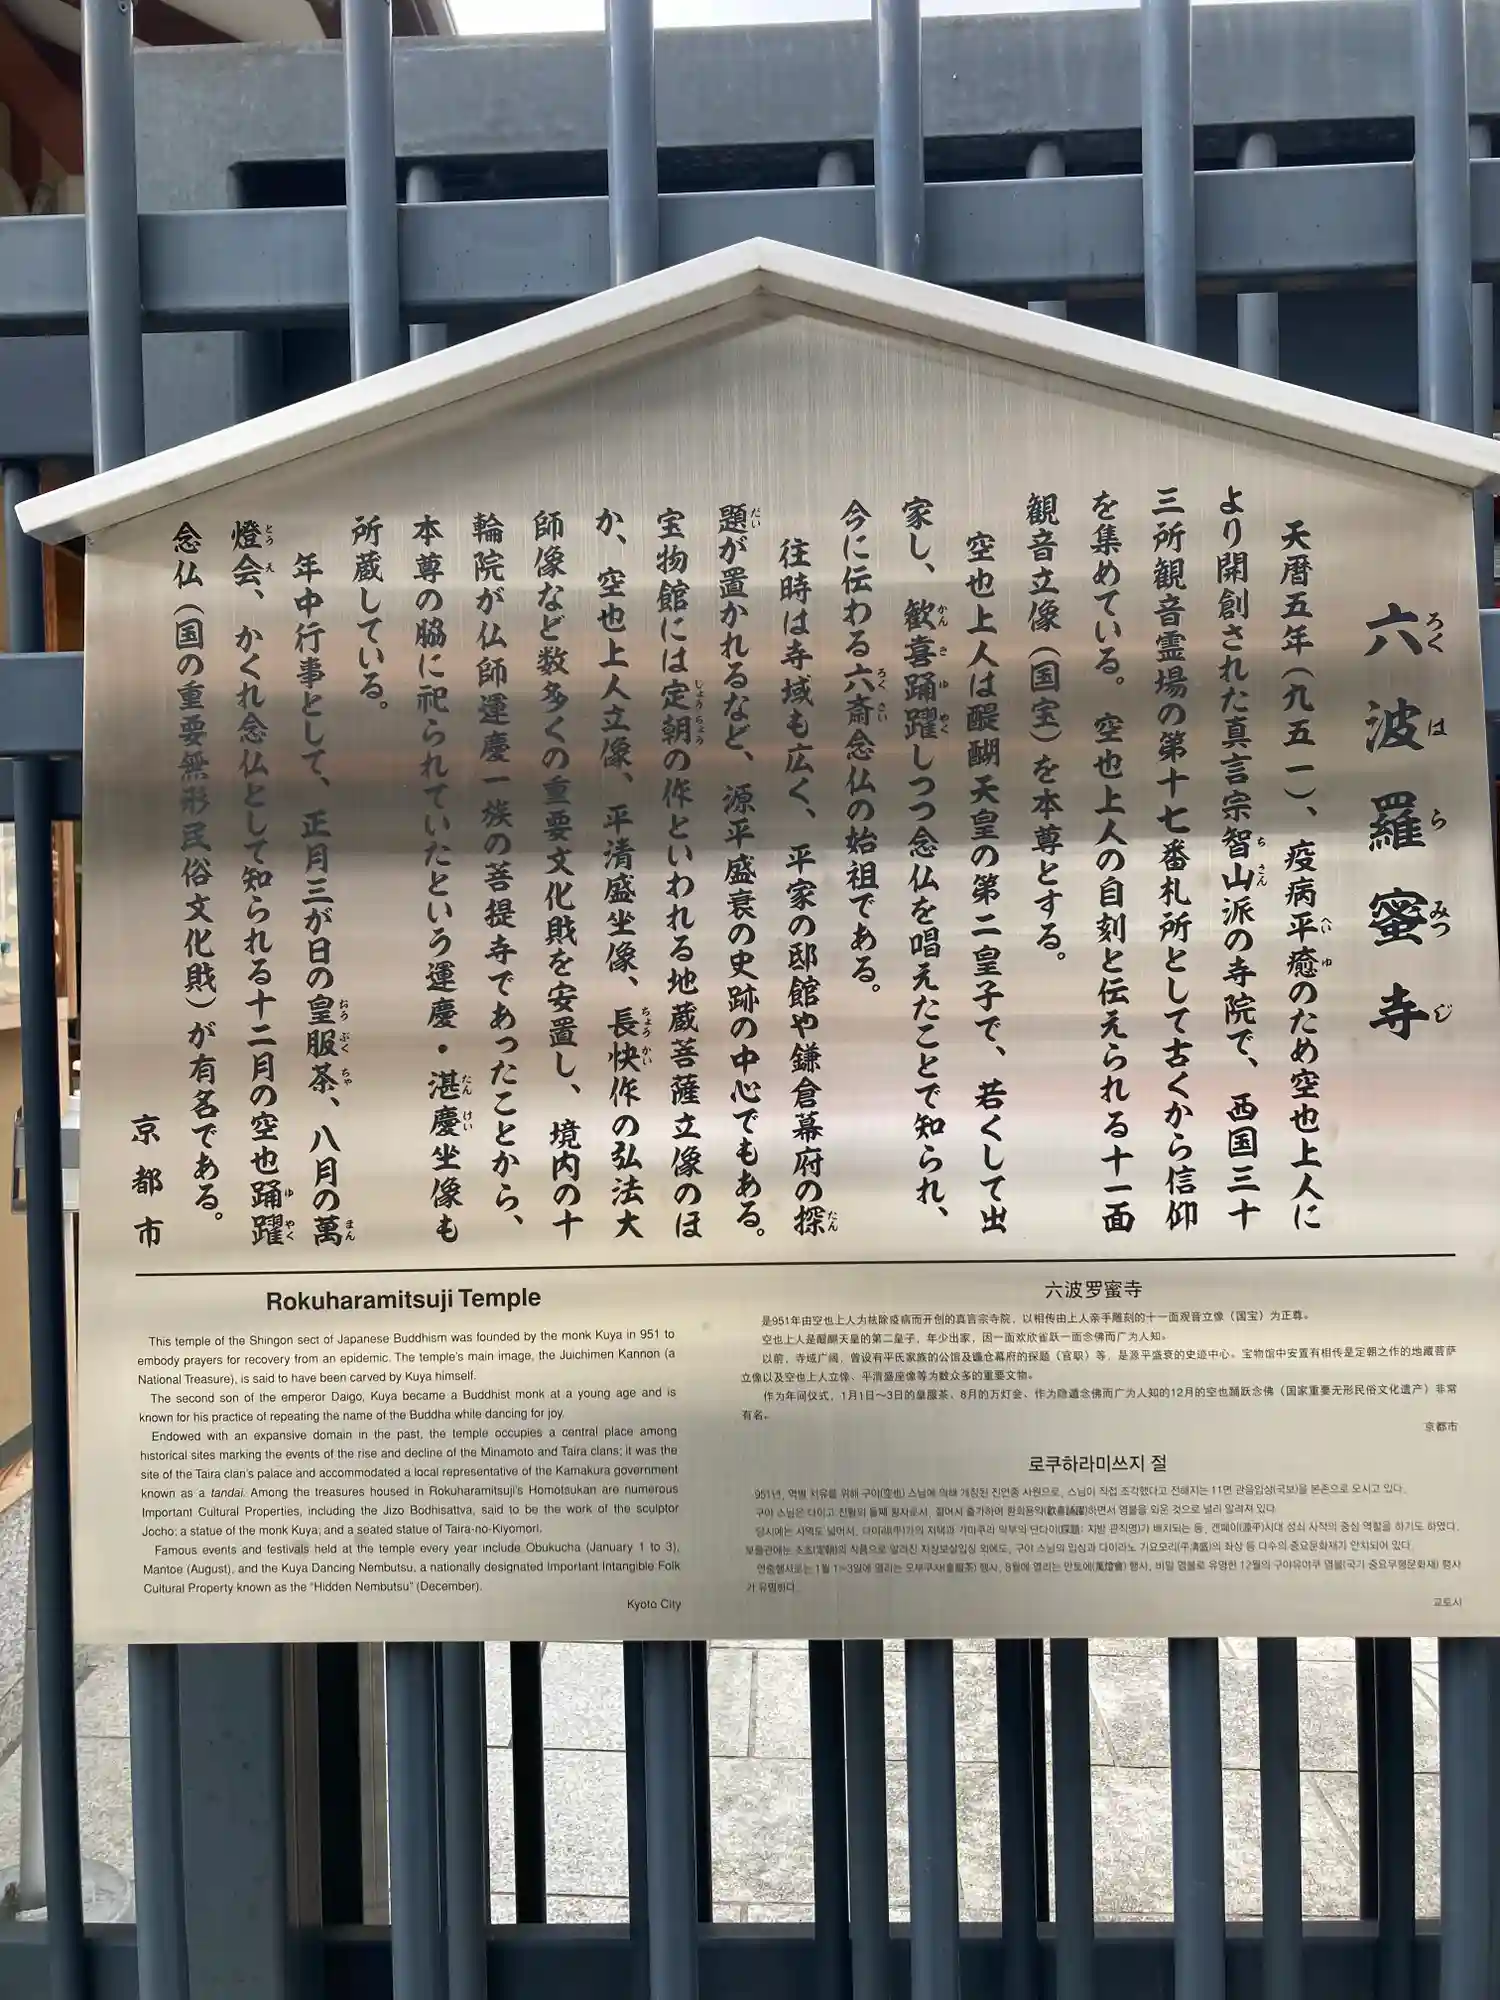 六波羅蜜寺
ろく は ら みつ じ
天暦五年（九五一）、疫病平癒のため空也上人に
へい ゆ
より開創された真言宗智山派の寺院で、西国三十
ち さん
三所観音霊場の第十七番札所として古くから信仰
を集めている。空也上人の自刻と伝えられる十一面
観音立像（国宝）を本尊とする。
空也上人は醍醐天皇の第二皇子で、若くして出
家し、歓喜踊躍しつつ念仏を唱えたことで知られ、
かん き ゆ やく
今に伝わる六斎念仏の始祖である。
ろく さい
往時は寺域も広く、平家の邸館や鎌倉幕府の探
たん
題が置かれるなど、源平盛衰の史跡の中心でもある。
だい
宝物館には定朝の作といわれる地蔵菩薩立像のほ
じょう ちょう
か、空也上人立像、平清盛坐像、長快作の弘法大
ちょう かい
師像など数多くの重要文化財を安置し、境内の十
輪院が仏師運慶一族の菩提寺であったことから、
本尊の脇に祀られていたという運慶・湛慶坐像も
たん けい
所蔵している。
年中行事として、正月三が日の皇服茶、八月の萬
おう ぶく ちゃ まん
燈会、かくれ念仏として知られる十二月の空也踊躍
とう え ゆ やく
念仏（国の重要無形民俗文化財）が有名である。
京都市
Rokuharamitsuji Temple
This temple of the Shingon sect of Japanese Buddhism was founded by the monk Kuya in 951 to
embody prayers for recovery from an epidemic. The temple's main image, the Juichimen Kannon (a
National Treasure), is said to have been carved by Kuya himself.
The second son of the emperor Daigo, Kuya became a Buddhist monk at a young age and is
known for his practice of repeating the name of the Buddha while dancing for joy.
Endowed with an expansive domain in the past, the temple occupies a central place among
historical sites marking the events of the rise and decline of the Minamoto and Taira clans; it was the
site of the Taira clan's palace and accommodated a local representative of the Kamakura government
known as a tandai. Among the treasures housed in Rokuharamitsuji's Homotsukan are numerous
Important Cultural Properties, including the Jizo Bodhisattva, said to be the work of the sculptor
Jocho; a statue of the monk Kuya; and a seated statue of Taira-no-Kiyomori.
Famous events and festivals held at the temple every year include Obukucha (January 1 to 3),
Mantoe (August), and the Kuya Dancing Nembutsu, a nationally designated Important Intangible Folk
Cultural Property known as the "Hidden Nembutsu" (December).
Kyoto City
六波罗蜜寺
是951年由空也上人为祛除疫病而开创的真言宗寺院，以相传由上人亲手雕刻的十一面观音立像（国宝）为正尊。
空也上人是醍醐天皇的第二皇子，年少出家，因一面欢欣雀跃一面念佛而广为人知。
以前，寺域广阔，曾设有平氏家族的公馆及镰仓幕府的探题（官职）等，是源平盛衰的史迹中心。宝物馆中安置有相传是定朝之作的地藏菩萨
立像以及空也上人立像、平清盛座像等为数众多的重要文物。
作为年间仪式，1月1日～3日的皇服茶、8月的万灯会、作为隐遁念佛而广为人知的12月的空也踊跃念佛（国家重要无形民俗文化遗产）非常
有名。
京都市
로쿠하라미쓰지 절
951년, 역병 치유를 위해 구야(空也) 스님에 의해 개창된 진언종 사원으로, 스님이 직접 조각했다고 전해지는 11면 관음입상(국보)을 본존으로 모시고 있다.
구야 스님은 다이고 천황의 둘째 황자로서, 젊어서 출가하여 환희용약(歡喜踊躍)하면서 염불을 외운 것으로 널리 알려져 있다.
당시에는 사역도 넓어서, 다이라(平)가의 저택과 가마쿠라 막부의 단다이(探題: 지방 관직명)가 배치되는 등, 겐페이(源平)시대 성쇠 사적의 중심 역할을 하기도 하였다.
보물관에는 조초(定朝)의 작품으로 알려진 지장보살입상 외에도, 구야 스님의 입상과 다이라노 기요모리(平清盛)의 좌상 등 다수의 중요문화재가 안치되어 있다.
연중행사로는 1월 1~3일에 열리는 오부쿠차(皇服茶) 행사, 8월에 열리는 만토에(萬燈會) 행사, 비밀 염불로 유명한 12월의 구야유야쿠 염불(국가 중요무형문화재) 행사
가 유명하다.
교토시